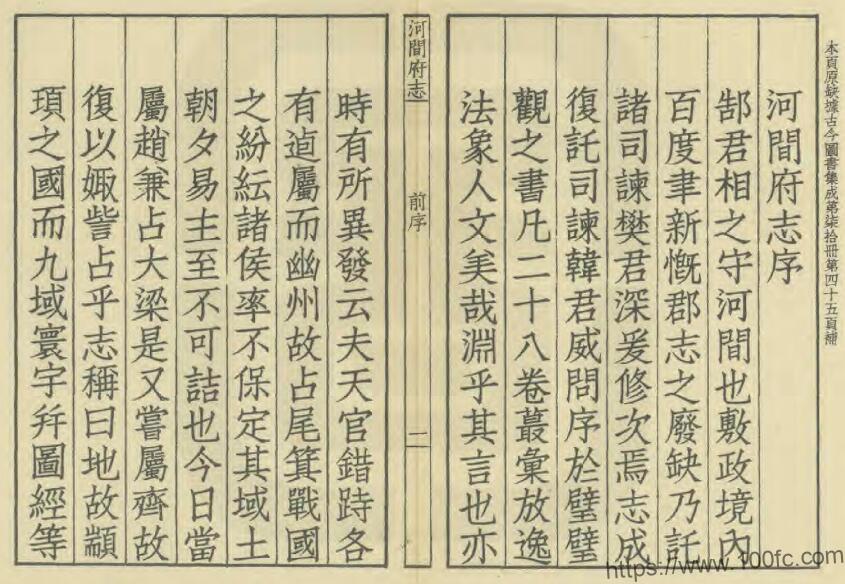 本頁原缺據古今圖書集成第柒拾冊第四十五頁補
河間府志序
郜君相之守河間也敷政境內
百度聿新慨郡志之廢缺乃託
諸司諫樊君深爰修次焉志成
復託司諫韓君威問序於璧璧
觀之書凡二十八卷蕞彙放逸
法象人文羙哉淵乎其言也亦
河間府志
前序
二
時有所異發云夫天官錯跱各
有逌屬而幽州故占尾箕戰國
之紛紜諸侯率不保定其域土
朝夕易主至不可詰也今日當
屬趙兼占大梁是又嘗屬齊故
復以娵訾占乎志稱曰地故顓
頊之國而九域寰宇幷圖經等
https://www.100fc.com